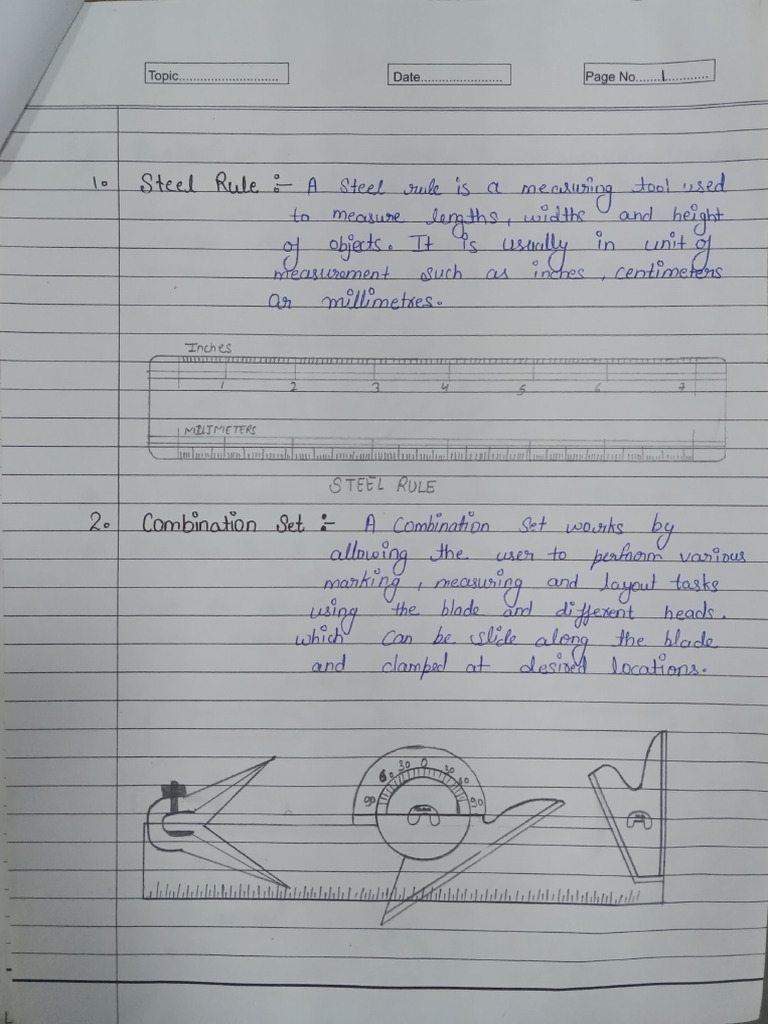 Topic............................ Date........................ Page No.......1............
1. Steel Rule :- A Steel rule is a measuring tool used
to measure lengths, widths and height
of objects. It is usually in unit of
measurement such as inches, centimeters
or millimetres.
Inches
1 2 3 4 5 6 7
MILIMETERS
STEEL RULE
2. Combination Set :- A Combination Set works by
allowing the user to perform various
marking, measuring and layout tasks
using the blade and different heads.
which can be slide along the blade
and clamped at desired locations.
90 60 30 0 30 60 90